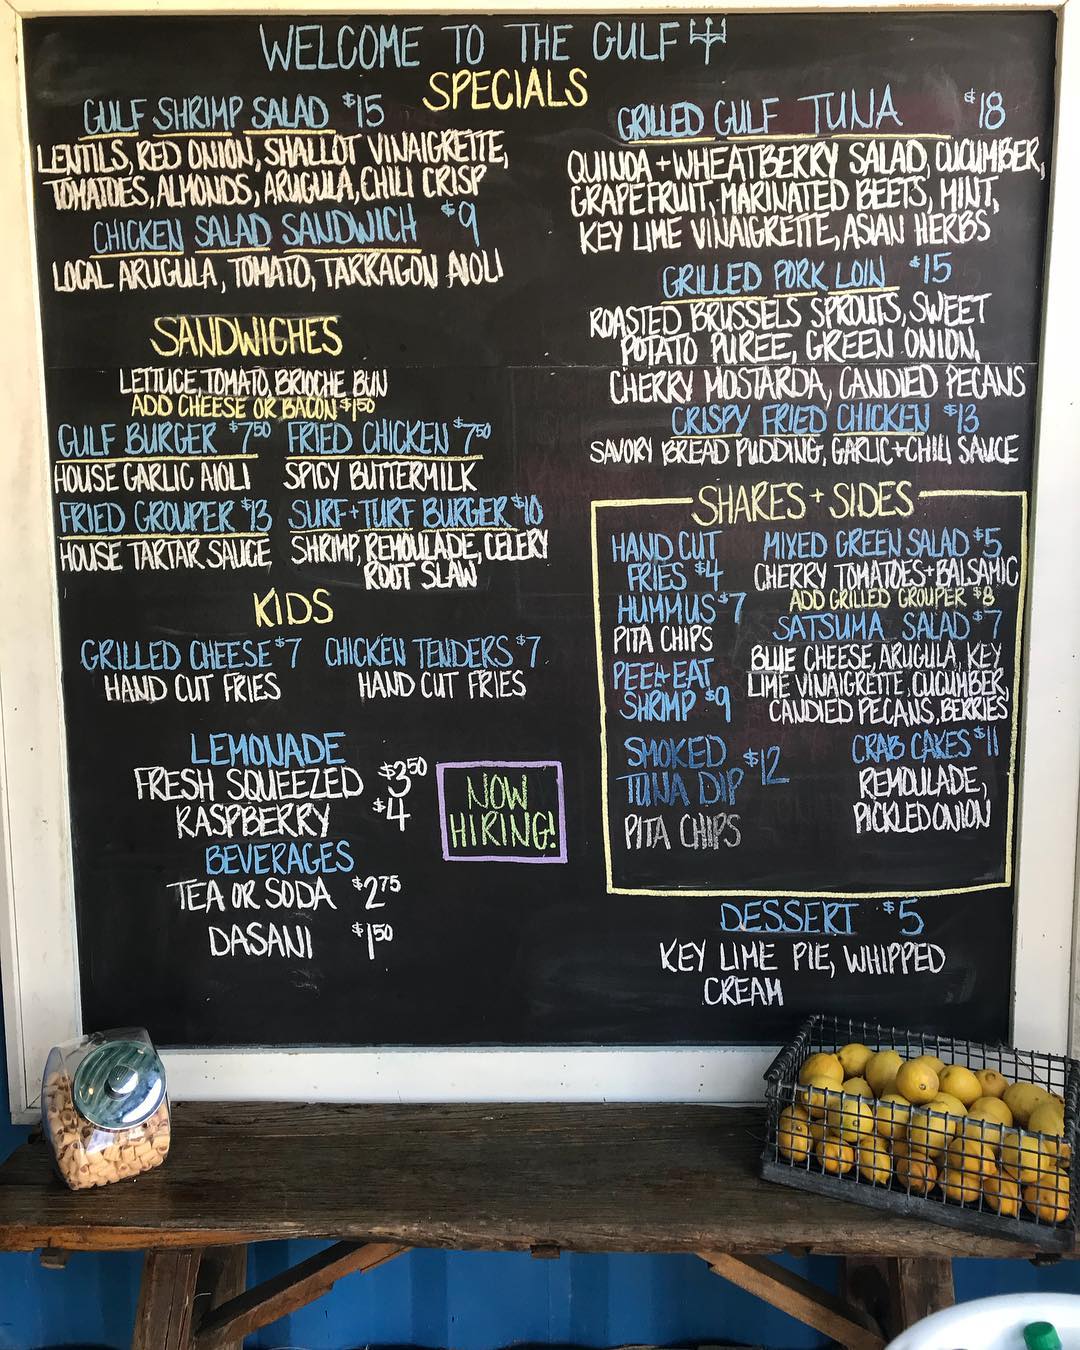 WELCOME TO THE GULF
SPECIALS
GULF SHRIMP SALAD $15
LENTILS, RED ONION, SHALLOT VINAIGRETTE,
TOMATOES, ALMONDS, ARUGULA, CHILI CRISP
CHICKEN SALAD SANDWICH $9
LOCAL ARUGULA, TOMATO, TARRAGON AIOLI
GRILLED GULF TUNA $18
QUINOA + WHEATBERRY SALAD, CUCUMBER,
GRAPEFRUIT, MARINATED BEETS, MINT,
KEY LIME VINAIGRETTE, ASIAN HERBS
GRILLED PORK LOIN $15
ROASTED BRUSSELS SPROUTS, SWEET
POTATO PUREE, GREEN ONION,
CHERRY MOSTARDA, CANDIED PECANS
CRISPY FRIED CHICKEN $13
SAVORY BREAD PUDDING, GARLIC + CHILI SAUCE
SANDWICHES
LETTUCE, TOMATO, BRIOCHE BUN
ADD CHEESE OR BACON $1 50
GULF BURGER $7 50
HOUSE GARLIC AIOLI
FRIED CHICKEN $7 50
SPICY BUTTERMILK
FRIED GROUPER $13
HOUSE TARTAR SAUCE
SURF + TURF BURGER $10
SHRIMP, REMOULADE, CELERY
ROOT SLAW
KIDS
GRILLED CHEESE $7
HAND CUT FRIES
CHICKEN TENDERS $7
HAND CUT FRIES
LEMONADE
FRESH SQUEEZED $3 50
RASPBERRY $4
BEVERAGES
TEA OR SODA $2 75
DASANI $1 50
NOW
HIRING!
SHARES + SIDES
HAND CUT
FRIES $4
HUMMUS $7
PITA CHIPS
PEEL + EAT
SHRIMP $9
SMOKED
TUNA DIP $12
PITA CHIPS
MIXED GREEN SALAD $5
CHERRY TOMATOES + BALSAMIC
ADD GRILLED GROUPER $8
SATSUMA SALAD $7
BLUE CHEESE, ARUGULA, KEY
LIME VINAIGRETTE, CUCUMBER,
CANDIED PECANS, BERRIES
CRAB CAKES $11
REMOULADE,
PICKLED ONION
DESSERT $5
KEY LIME PIE, WHIPPED
CREAM